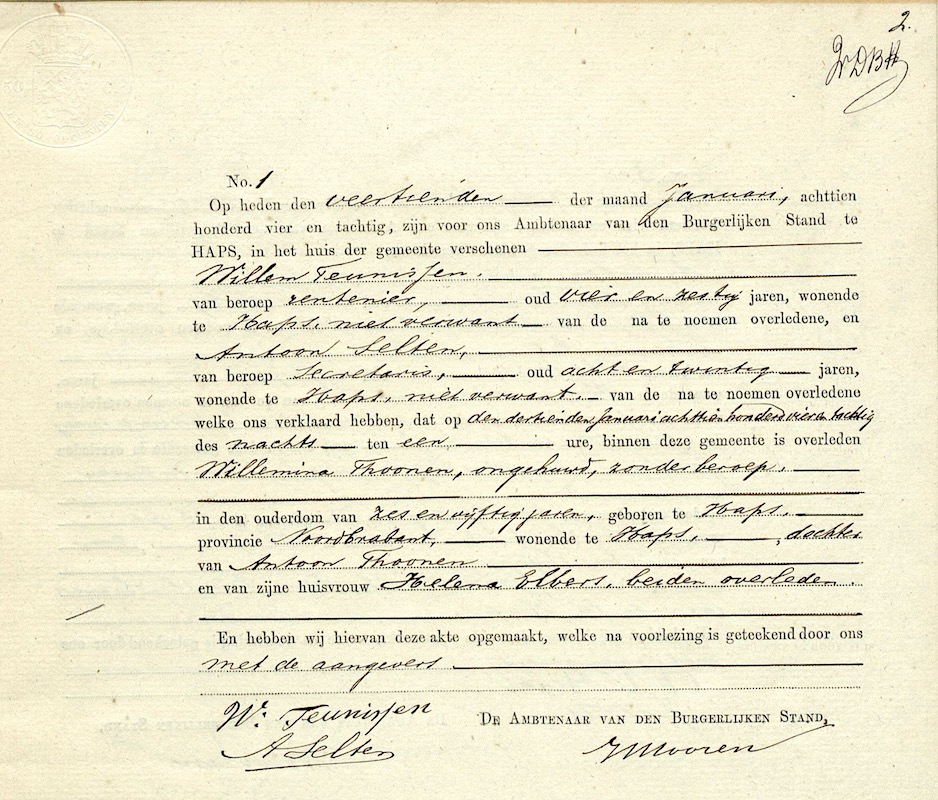 2.
No. 1
Op heden den veertienden der maand Januari, achttien
honderd vier en tachtig, zijn voor ons Ambtenaar van den Burgerlijken Stand te
HAPS, in het huis der gemeente verschenen
Willem Teunissen.
van beroep rentenier, oud vier en zestig jaren, wonende
te Haps, niet verwant van de na te noemen overledene, en
Antoon Selten,
van beroep Secretaris, oud acht en twintig jaren,
wonende te Haps, niet verwant. van de na te noemen overledene
welke ons verklaard hebben, dat op den dertienden Januari achttien honderd vier en tachtig
des nachts ten een ure, binnen deze gemeente is overleden
Willemina Thoonen, ongehuwd, zonder beroep.
in den ouderdom van zes en vijftig jaren, geboren te Haps,
provincie Noordbrabant, wonende te Haps, , dochter
van Antoon Thoonen
en van zijne huisvrouw Helena Elbers, beiden overleden.
En hebben wij hiervan deze akte opgemaakt, welke na voorlezing is geteekend door ons
met de aangevers.
W. Teunissen
De Ambtenaar van den Burgerlijken Stand,
A Selten